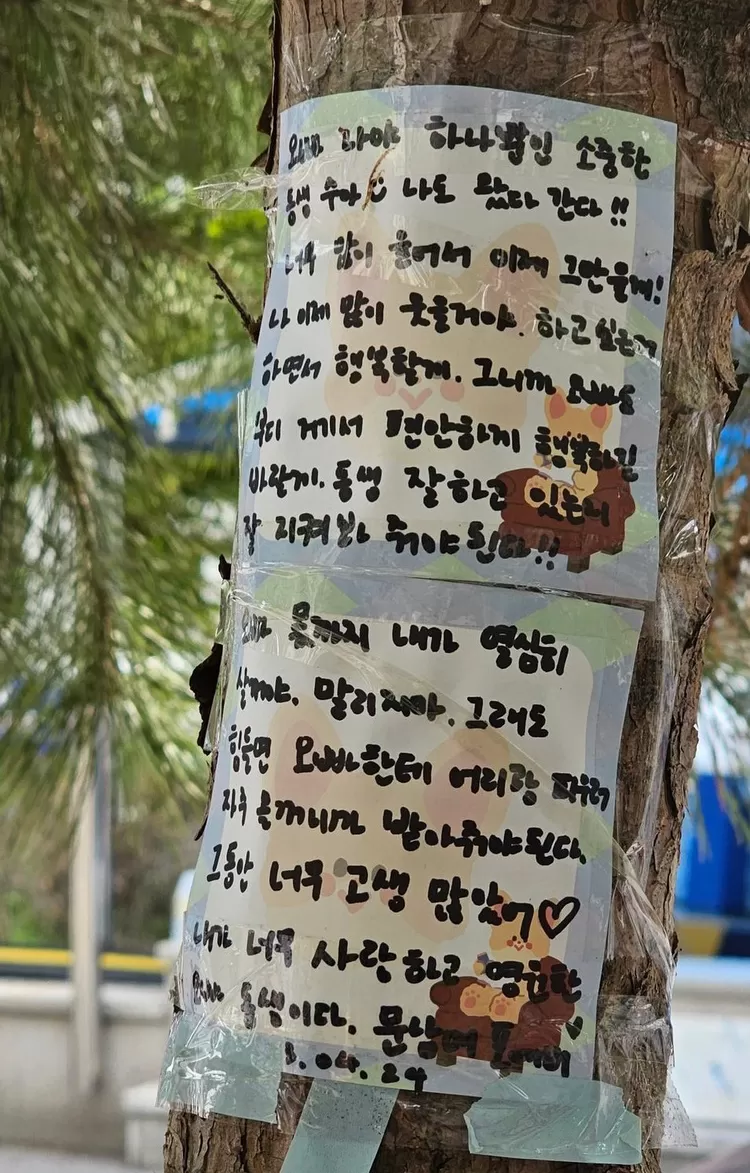 오빠 나야 하나뿐인 소중한
동생 수아 나도 왔다 간다!!
너무 많이 울어서 이제 그만울게!
나 이제 많이 웃을거야. 하고싶은거
하면서 행복할게. 그니까 오빠도
부디 게서 편안하게 행복하길
바랄게. 동생 잘하고 있는지
잘 지켜봐 줘야된다!!
오빠 몫까지 내가 열심히
살게야. 말리지마. 그래도
힘들면 오빠한테 어리광
자주 올꺼니까 받아줘야된다.
그동안 너무 고생 많았어♡
내가 너무 사랑하고 영원한
오빠 동생이다.
04. 24